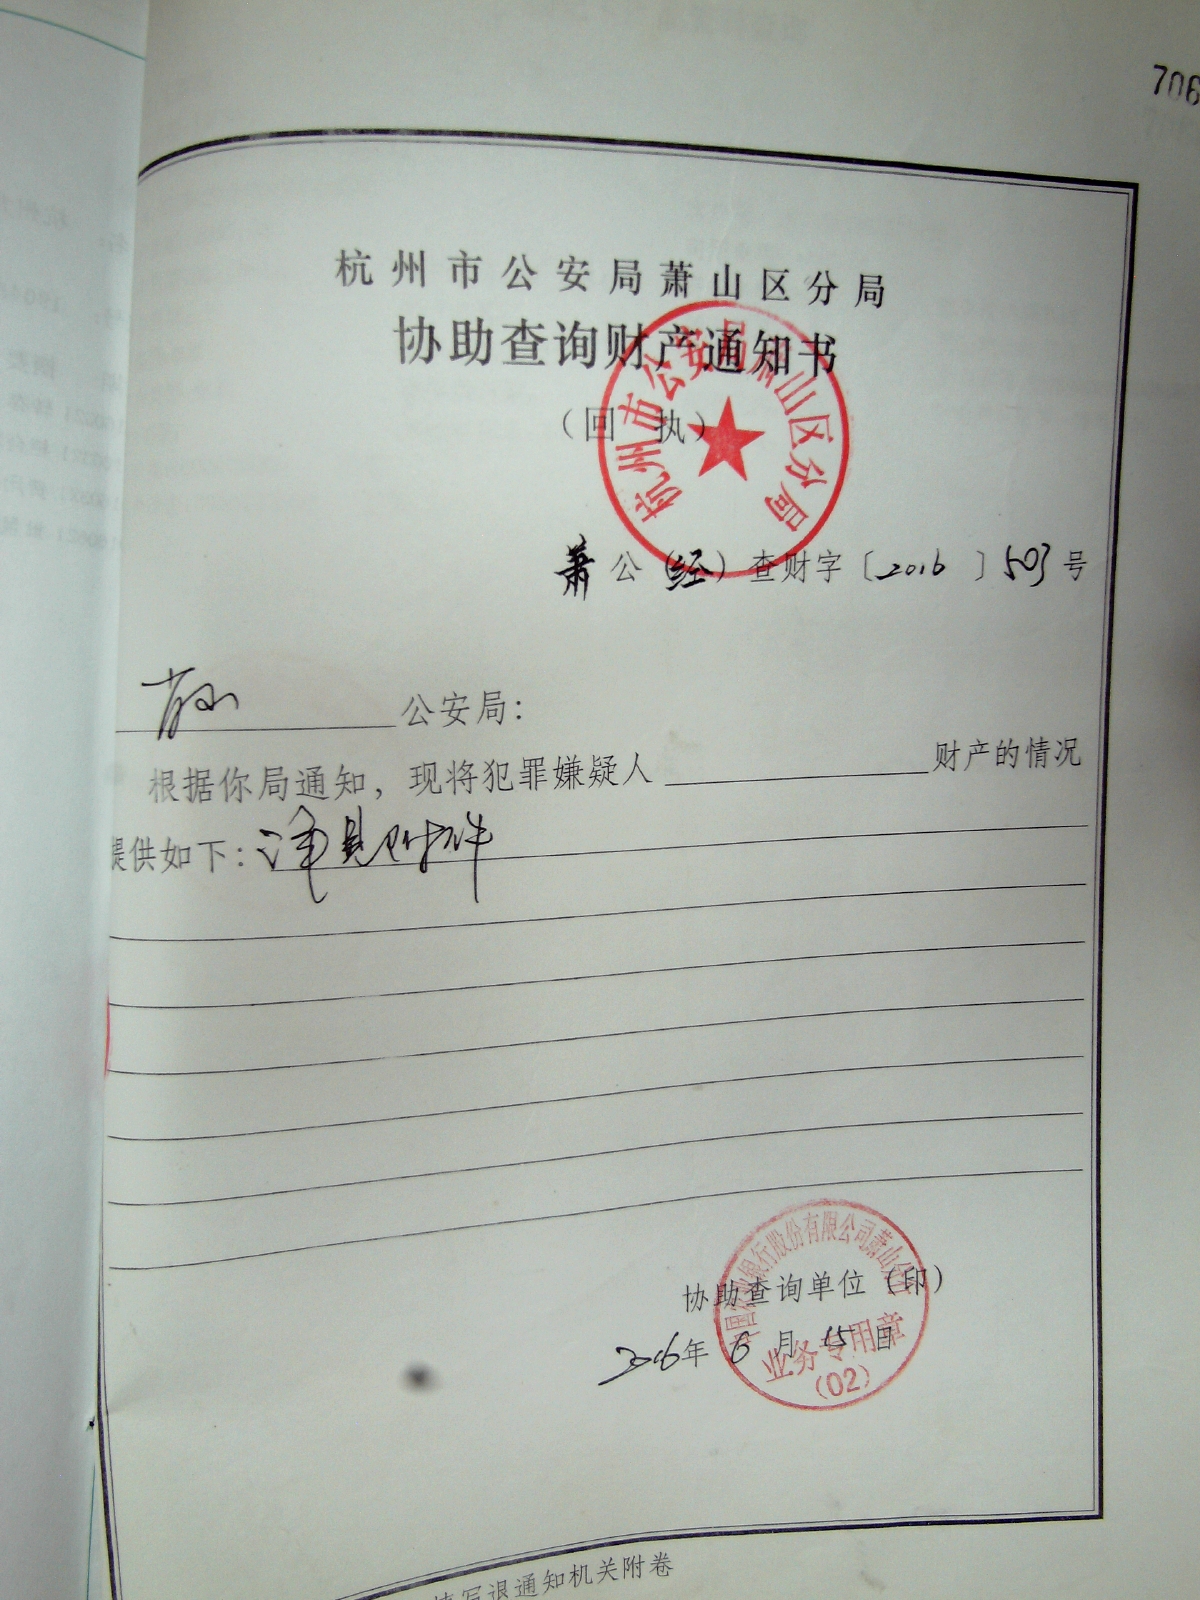 706
杭州市公安局萧山区分局
协助查询财产通知书
（回 执）
杭州市公安局萧山区分局
萧公（经）查财字〔2016〕503号
萧山公安局：
根据你局通知，现将犯罪嫌疑人 财产的情况
提供如下：详见附件
协助查询单位（印）
2016年6月15日
银行股份有限公司萧山分行
业务专用章
(02)
填写退通知机关附卷